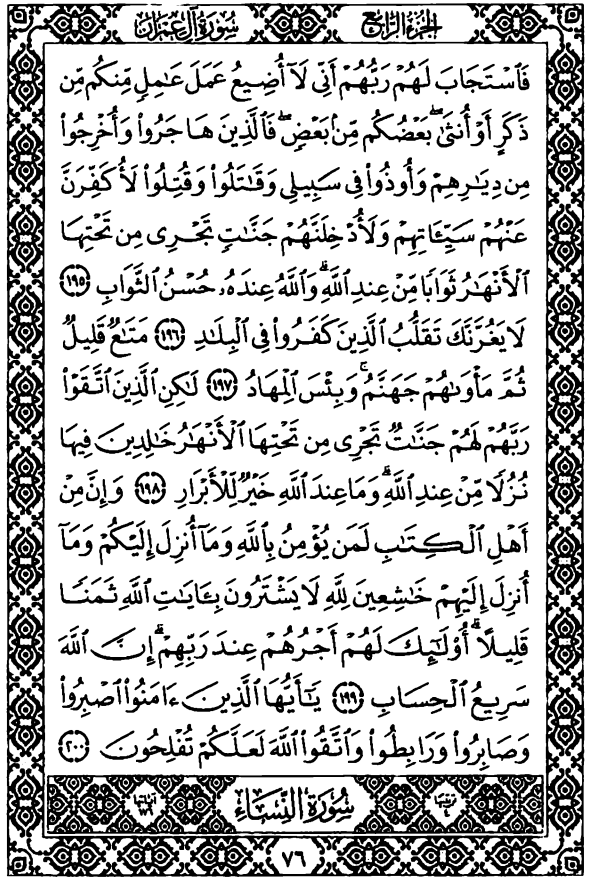 سُورَةُ آلِ عِمْرَانَ
الجُزءُ الرَّابِعُ
فَٱسْتَجَابَ لَهُمْ رَبُّهُمْ أَنِّى لَآ أُضِيعُ عَمَلَ عَٰمِلٍ مِّنكُم مِّن
ذَكَرٍ أَوْ أُنثَىٰۖ بَعْضُكُم مِّنۢ بَعْضٍۖ فَٱلَّذِينَ هَاجَرُوا۟ وَأُخْرِجُوا۟
مِن دِيَٰرِهِمْ وَأُوذُوا۟ فِى سَبِيلِى وَقَٰتَلُوا۟ وَقُتِلُوا۟ لَأُكَفِّرَنَّ
عَنْهُمْ سَيِّـَٔاتِهِمْ وَلَأُدْخِلَنَّهُمْ جَنَّٰتٍ تَجْرِى مِن تَحْتِهَا
ٱلْأَنْهَٰرُ ثَوَابًا مِّنْ عِندِ ٱللَّهِۗ وَٱللَّهُ عِندَهُۥ حُسْنُ ٱلثَّوَابِ ١٩٥
لَا يَغُرَّنَّكَ تَقَلُّبُ ٱلَّذِينَ كَفَرُوا۟ فِى ٱلْبِلَٰدِ ١٩٦ مَتَٰعٌ قَلِيلٌ
ثُمَّ مَأْوَىٰهُمْ جَهَنَّمُۚ وَبِئْسَ ٱلْمِهَادُ ١٩٧ لَٰكِنِ ٱلَّذِينَ ٱتَّقَوْا۟
رَبَّهُمْ لَهُمْ جَنَّٰتٌ تَجْرِى مِن تَحْتِهَا ٱلْأَنْهَٰرُ خَٰلِدِينَ فِيهَا
نُزُلًا مِّنْ عِندِ ٱللَّهِۗ وَمَا عِندَ ٱللَّهِ خَيْرٌ لِّلْأَبْرَارِ ١٩٨ وَإِنَّ مِنْ
أَهْلِ ٱلْكِتَٰبِ لَمَن يُؤْمِنُ بِٱللَّهِ وَمَآ أُنزِلَ إِلَيْكُمْ وَمَآ
أُنزِلَ إِلَيْهِمْ خَٰشِعِينَ لِلَّهِ لَا يَشْتَرُونَ بِـَٔايَٰتِ ٱللَّهِ ثَمَنًا
قَلِيلًاۗ أُو۟لَٰٓئِكَ لَهُمْ أَجْرُهُمْ عِندَ رَبِّهِمْۗ إِنَّ ٱللَّهَ
سَرِيعُ ٱلْحِسَابِ ١٩٩ يَٰٓأَيُّهَا ٱلَّذِينَ ءَامَنُوا۟ ٱصْبِرُوا۟
وَصَابِرُوا۟ وَرَابِطُوا۟ وَٱتَّقُوا۟ ٱللَّهَ لَعَلَّكُمْ تُفْلِحُونَ ٢٠٠
سُورَةُ النِّسَاءِ
٧٦